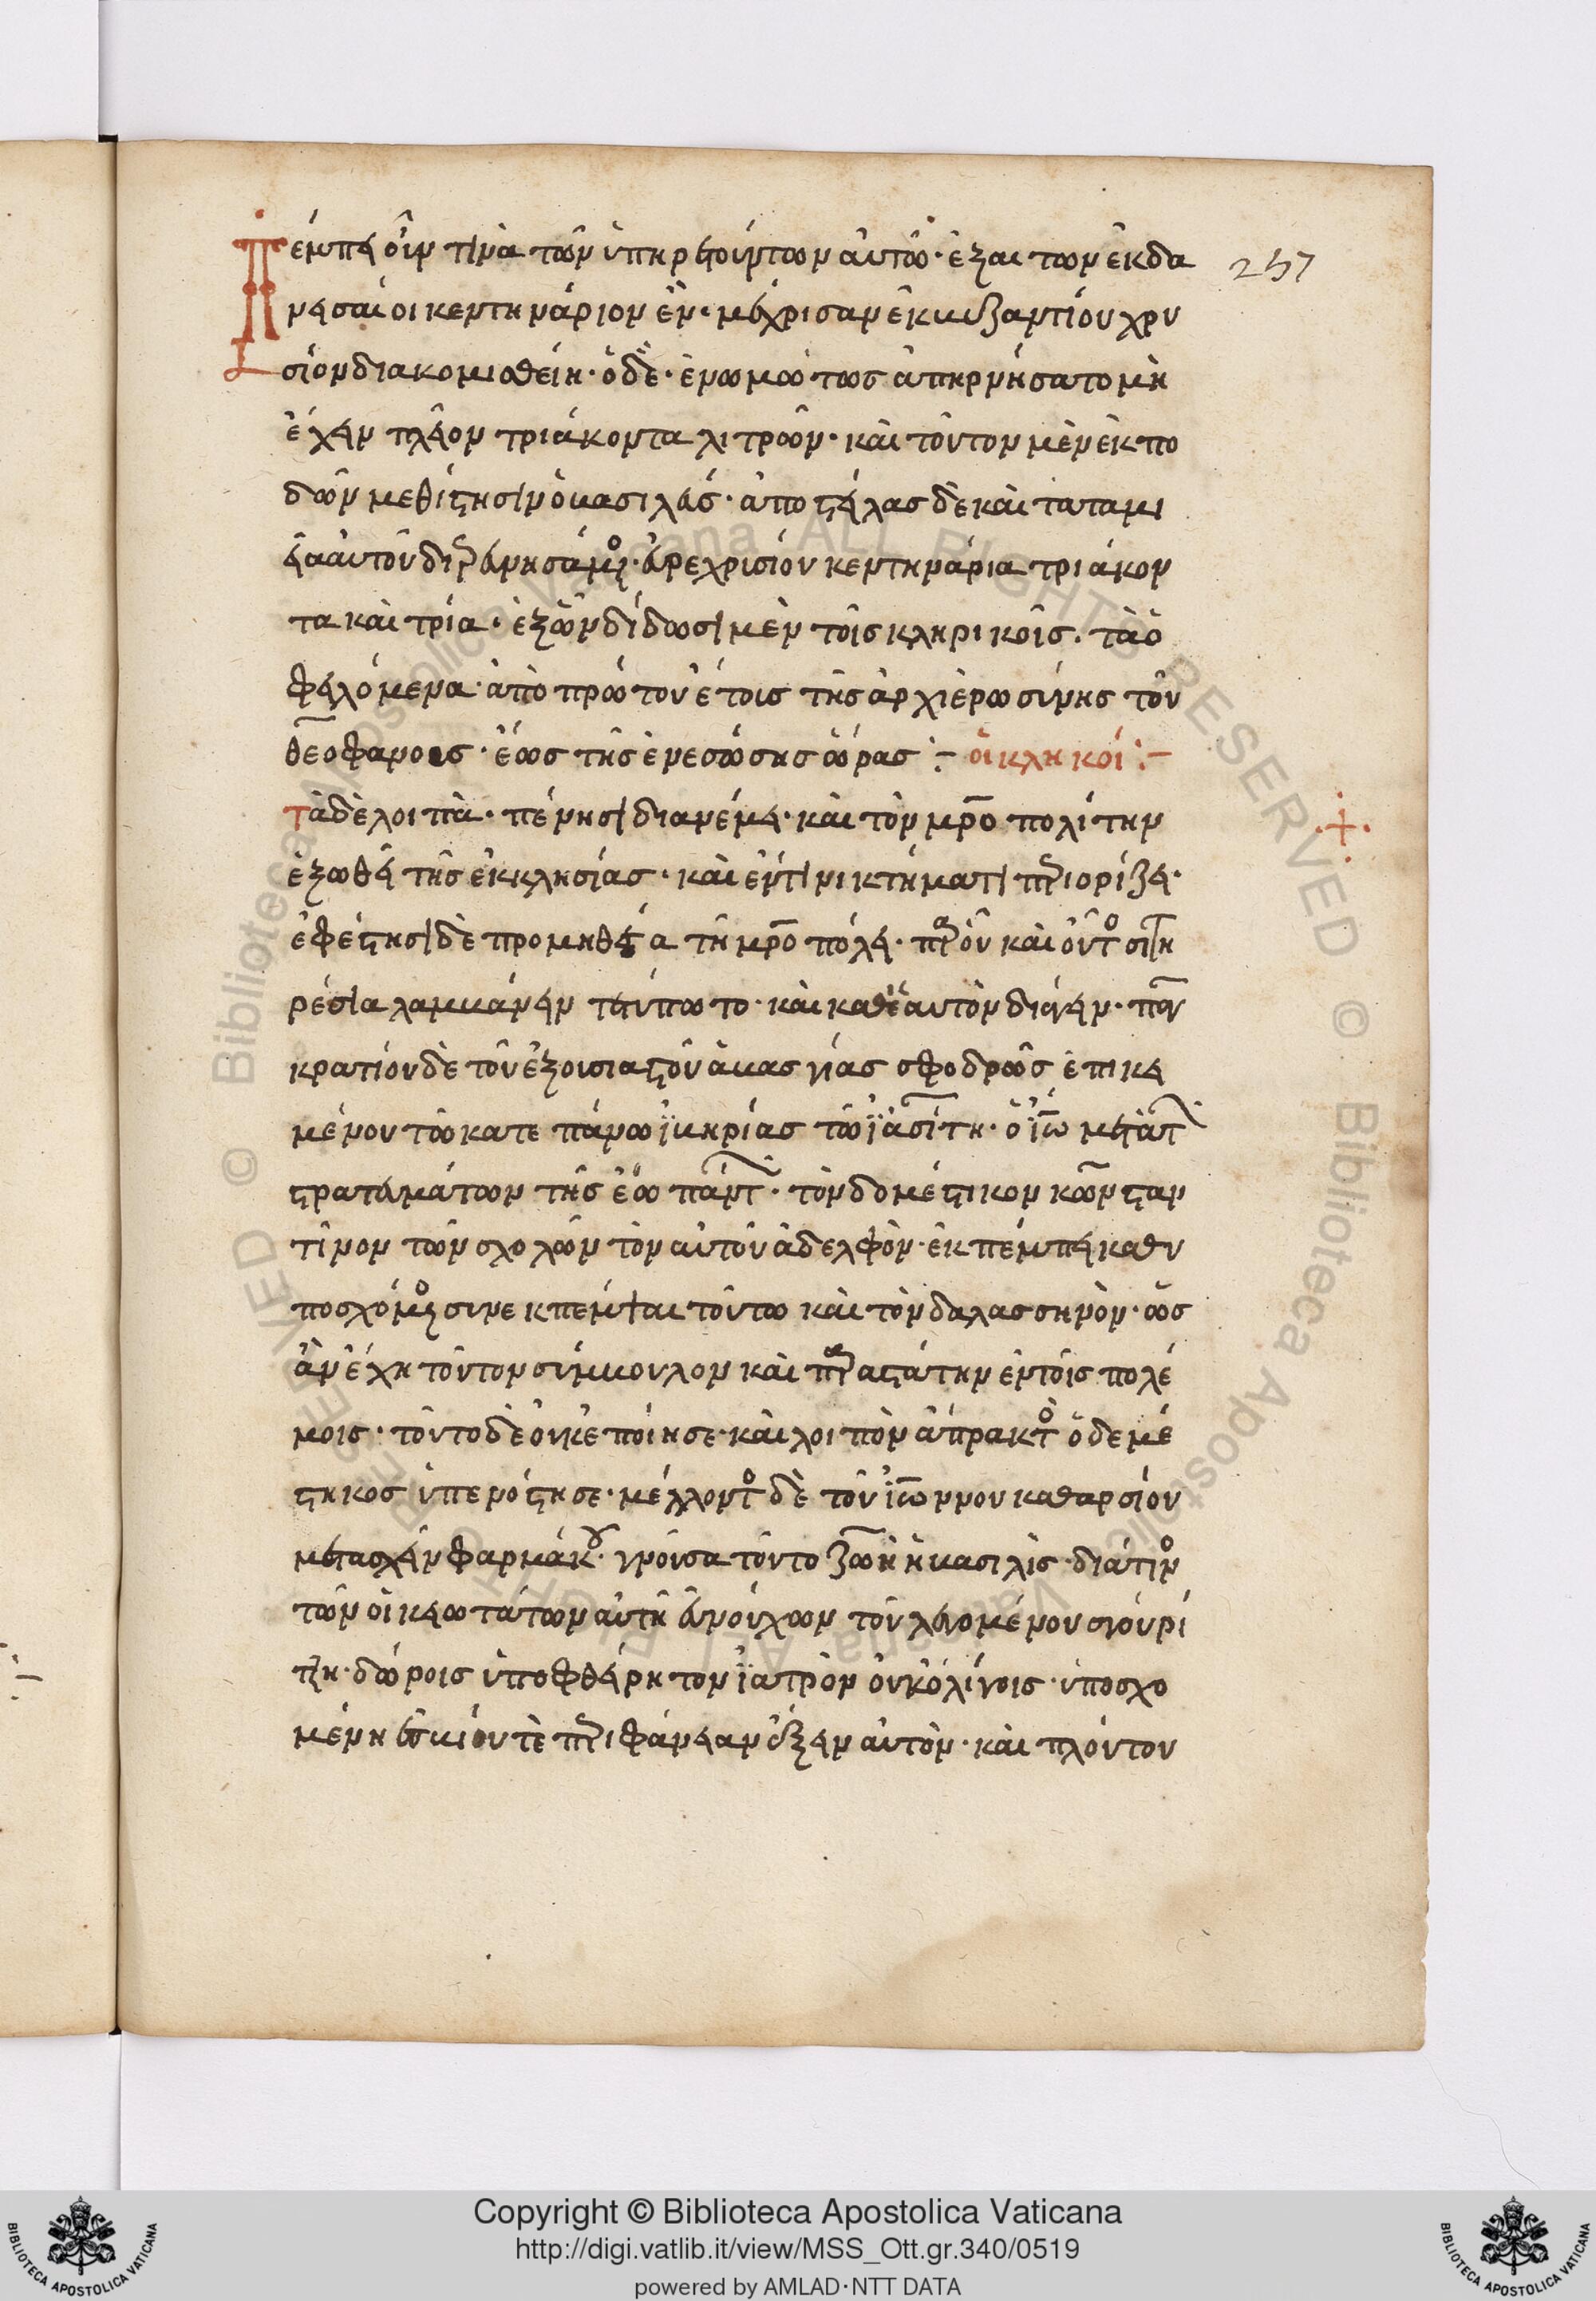 Πέμπει οὖν τινὰ τῶν ὑπηρετούντων αὐτῶ· ἐξαιτῶν ἐκδα
257
νεῖσαί οἱ κεντηνάριον ἕν· μέχρις ἂν ἐκ βυζαντίου χρυ
σίον διακομισθείη· ὁ δὲ· ἐνωμότως ἀπηρνήσατο μὴ
ἔχειν πλεῖον τριάκοντα λιτρῶν· καὶ τοῦτον μὲν ἐκπο
δῶν μεθίστησιν ὁ βασιλεύς· ἀποστείλας δὲ καὶ τὰ ταμι
εῖα αὐτοῦ διερευνησάμενος· εὗρε χρυσίου κεντηνάρια τριάκον
τα καὶ τρία· ἐξ ὧν δίδωσι μὲν τοῖς κληρικοῖς· τὰ ὀ
φειλόμενα ἀπὸ πρώτου ἔτους τῆς ἀρχιερωσύνης τοῦ
θεοφάνους· ἕως τῆς ἐνεστώσης ὥρας :– οἱ κληκοί :–
Τὰ δὲ λοιπὰ· πένησι διανέμει· καὶ τὸν μρο πολίτην
ἐξωθεῖ τῆς ἐκκλησίας· καὶ ἔν τινι κτήματι περιορίζει·
ἐφέστησι δὲ προμηθέα τῆ μροπόλει· παρ' οὗ καὶ οὗτος σιτη
ρέσια λαμβάνειν ταύπωτο· καὶ καθ' ἑαυτὸν διάγειν· παγ
κρατίου δὲ τοῦ ἐξουσιαστοῦ ἀβασγίας σφοδρῶς ἐπικει
μένου τῶ κατεπάνω ἰβηρίας τῶ ϊασίτη· ὁ ϊω μετὰ στ
στρατευμάτων τῆς ἕω πάντων· τὸν δομέστικον κωνσταν
τῖνον τῶν σχολῶν τὸν αὐτοῦ ἀδελφὸν· ἐκπέμπει καθυ
ποσχόμενος συνεκπέμψαι τούτω καὶ τὸν δαλασσηνὸν· ὡς
ἂν ἔχη τοῦτον σύμβουλον καὶ παραστάτην ἐν τοῖς πολέ
μοις· τοῦτο δὲ οὐκ ἐποίησε· καὶ λοιπὸν ἄπρακτος ὁ δεμέ
στηκος ὑπενόστησε· μέλλοντος δὲ τοῦ ϊωάννου καθαρσίου
μετασχεῖν φαρμάκου· γνοῦσα τοῦτο ζωὴ ἡ βασιλὶς· διά τινος
τῶν οἰκειωτάτων αὐτῆ εὐνούχων τοῦ λεγομένου σγουρί
τζη· δώροις ὑποφθείρη τον ϊατρὸν οὐκ ὀλίγοις· ὑποσχο
μένη βίου τὲ περιφάνειαν ἕξειν αὐτὸν· καὶ πλούτου
Copyright © Biblioteca Apostolica Vaticana
http://digi.vatlib.it/view/MSS_Ott.gr.340/0519
powered by AMLAD·NTT DATA